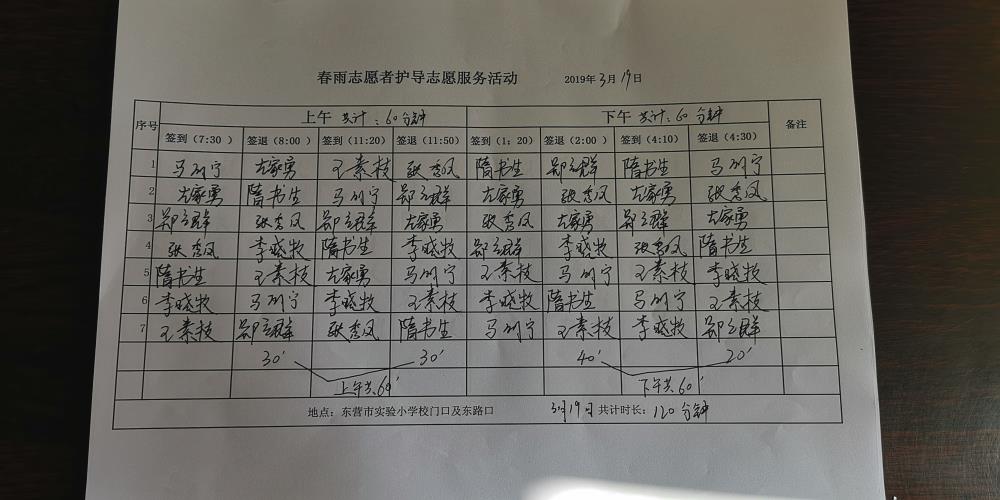 春雨志愿者护导志愿服务活动 2019年3月19日
序号 上午 共计:60分钟 下午 共计:60分钟 备注
签到(7:30 ) 签退(8:00 ) 签到(11:20) 签退(11:50) 签到(1;20) 签退(2:00 ) 签到(4:10) 签退(4:30)
1 马列宁 左家勇 王素枝 张秀凤 隋书生 郑立群 隋书生 马列宁
2 左家勇 隋书生 马列宁 郑立群 左家勇 张秀凤 左家勇 张秀凤
3 郑立群 张秀凤 郑立群 左家勇 张秀凤 左家勇 郑立群 左家勇
4 张秀凤 李晓牧 隋书生 李晓牧 郑立群 李晓牧 张秀凤 隋书生
5 隋书生 王素枝 左家勇 马列宁 王素枝 马列宁 王素枝 李晓牧
6 李晓牧 马列宁 李晓牧 王素枝 李晓牧 隋书生 马列宁 王素枝
7 王素枝 郑立群 张秀凤 隋书生 马列宁 王素枝 李晓牧 郑立群
30′ 30′ 40′ 20′
上午共60′ 下午共60′
地点:东营市实验小学校门口及东路口 3月19日共计时长:120分钟